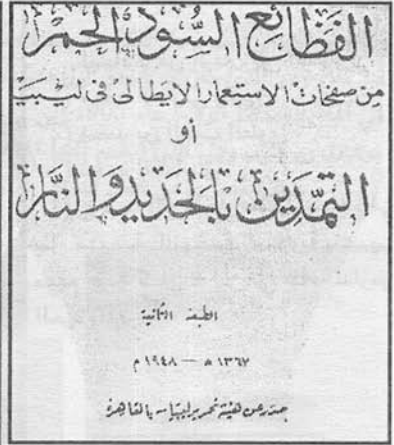 الفظائع السود الحمر
من صفحات الاستعمار الايطالى فى ليبيا
أو
التمدين بالحديد والنار
الطبعة الثانية
١٣٦٧ ه - ١٩٤٨ م
صدر عن هيئة تحرير ليبيا بالقاهرة